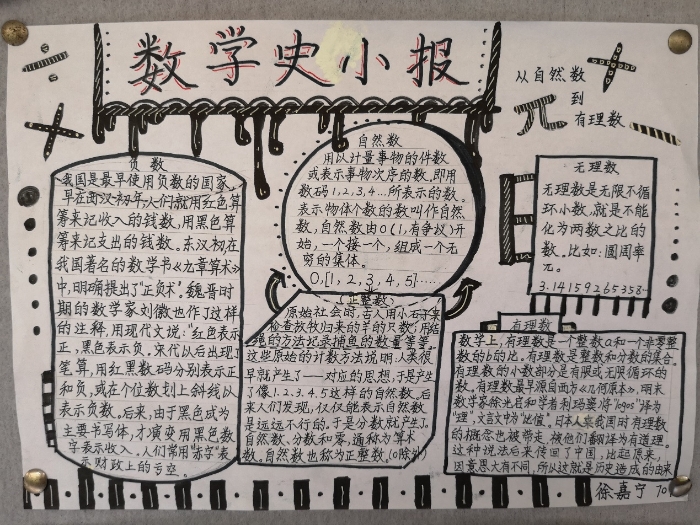 数学史小报
从自然数
到
有理数
π
负数
我国是最早使用负数的国家,
早在西汉初年,人们就用红色算
筹来记收入的钱数,用黑色算
筹来记支出的钱数。东汉初在
我国著名的数学书《九章算术》
中,明确提出了“正负术”。魏晋时
期的数学家刘徽也作了这样
的注释,用现代文说:“红色表示
正,黑色表示负。宋代以后出现了
笔算,用红黑数码分别表示正
和负,或在个位数划上斜线以
表示负数。后来,由于黑色成为
主要书写体,才演变用黑色数
字表示收入。人们常用“赤字”表
示财政上的亏空。
自然数
用以计量事物的件数
或表示事物次序的数。即用
数码1,2,3,4…所表示的数。
表示物体个数的数叫作自然
数,自然数由0(1,有争议)开
始,一个接一个,组成一个无
穷的集体。
0,[1,2,3,4,5]……
(正整数)
原始社会时,古人用小石子来
检查放牧归来的羊的只数;用结
绳的方法记录捕鱼的数量等等。
这些原始的计数方法说明:人类很
早就产生了一一对应的思想,于是产生
了像1.2.3.4.5这样的自然数。后
来人们发现,仅仅能表示自然数
是远远不行的。于是分数就产生了。
自然数、分数和零,通称为算术
数。自然数也称为正整数。(0除外)
无理数
无理数是无限不循
环小数,就是不能
化为两数之比的
数。比如:圆周率
π。
3.14159265358…
有理数
数学上,有理数是一个整数a和一个非零整
数b的比。有理数是整数和分数的集合。
有理数的小数部分是有限或无限循环的
数。有理数最早源自西方《几何原本》,明末
数学家徐光启和学者利玛窦将“logos”译为
“理”,文言文中为“比值”。日本人来我国时有理数
的概念也被带走,被他们翻译为有道理。
这种说法后来传回了中国,比起原来,
因意思大有不同,所以这就是历史造成的由来
徐嘉宁 70